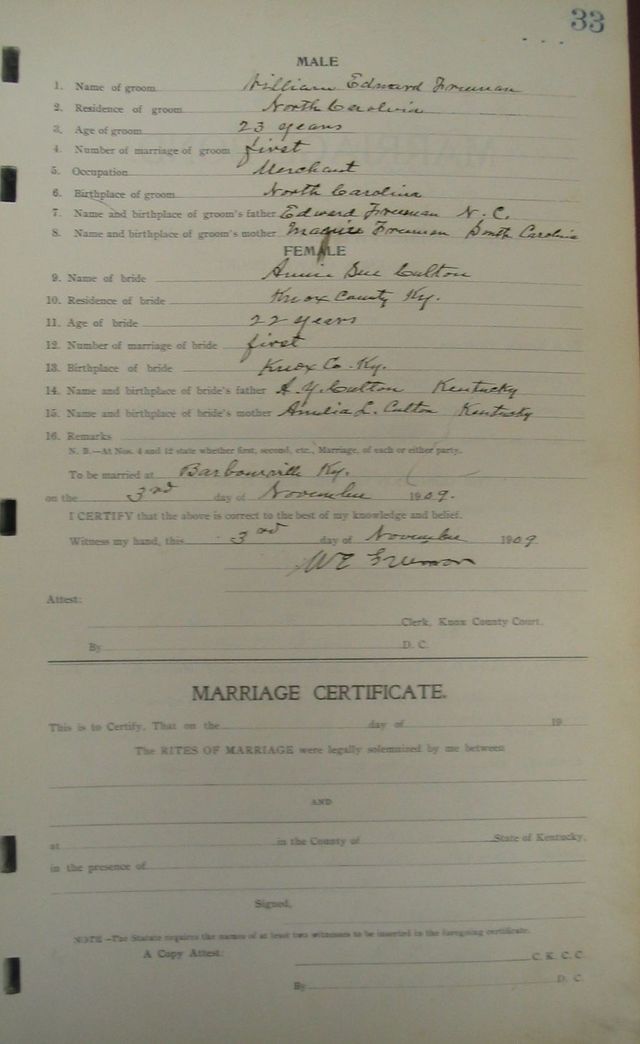 33
MALE
1. Name of groom William Edward Freeman
2. Residence of groom North Carolina
3. Age of groom 23 years
4. Number of marriage of groom first
5. Occupation Merchant
6. Birthplace of groom North Carolina
7. Name and birthplace of groom's father Edward Freeman N. C.
8. Name and birthplace of groom's mother Freeman South Carolina
FEMALE
9. Name of bride Annie Sue Culton
10. Residence of bride Knox County Ky.
11. Age of bride 22 years
12. Number of marriage of bride first
13. Birthplace of bride Knox Co. Ky.
14. Name and birthplace of bride's father A. Y. Culton Kentucky
15. Name and birthplace of bride's mother Amelia L. Culton Kentucky
16. Remarks
N. B.—At Nos. 4 and 12 state whether first, second, etc., Marriage, of each or either party.
To be married at Barbourville Ky.
on the 3rd day of November 1909.
I CERTIFY that the above is correct to the best of my knowledge and belief.
Witness my hand, this 3rd day of November 1909
W E Freeman
Attest:
Clerk, Knox County Court.
By D. C.
MARRIAGE CERTIFICATE.
This is to Certify, That on the day of 19
The RITES OF MARRIAGE were legally solemnized by me between
AND
at in the County of State of Kentucky,
in the presence of
Signed,
NOTE—The Statute requires the names of at least two witnesses to be inserted in the foregoing certificate.
A Copy Attest: C. K. C. C.
By D. C.